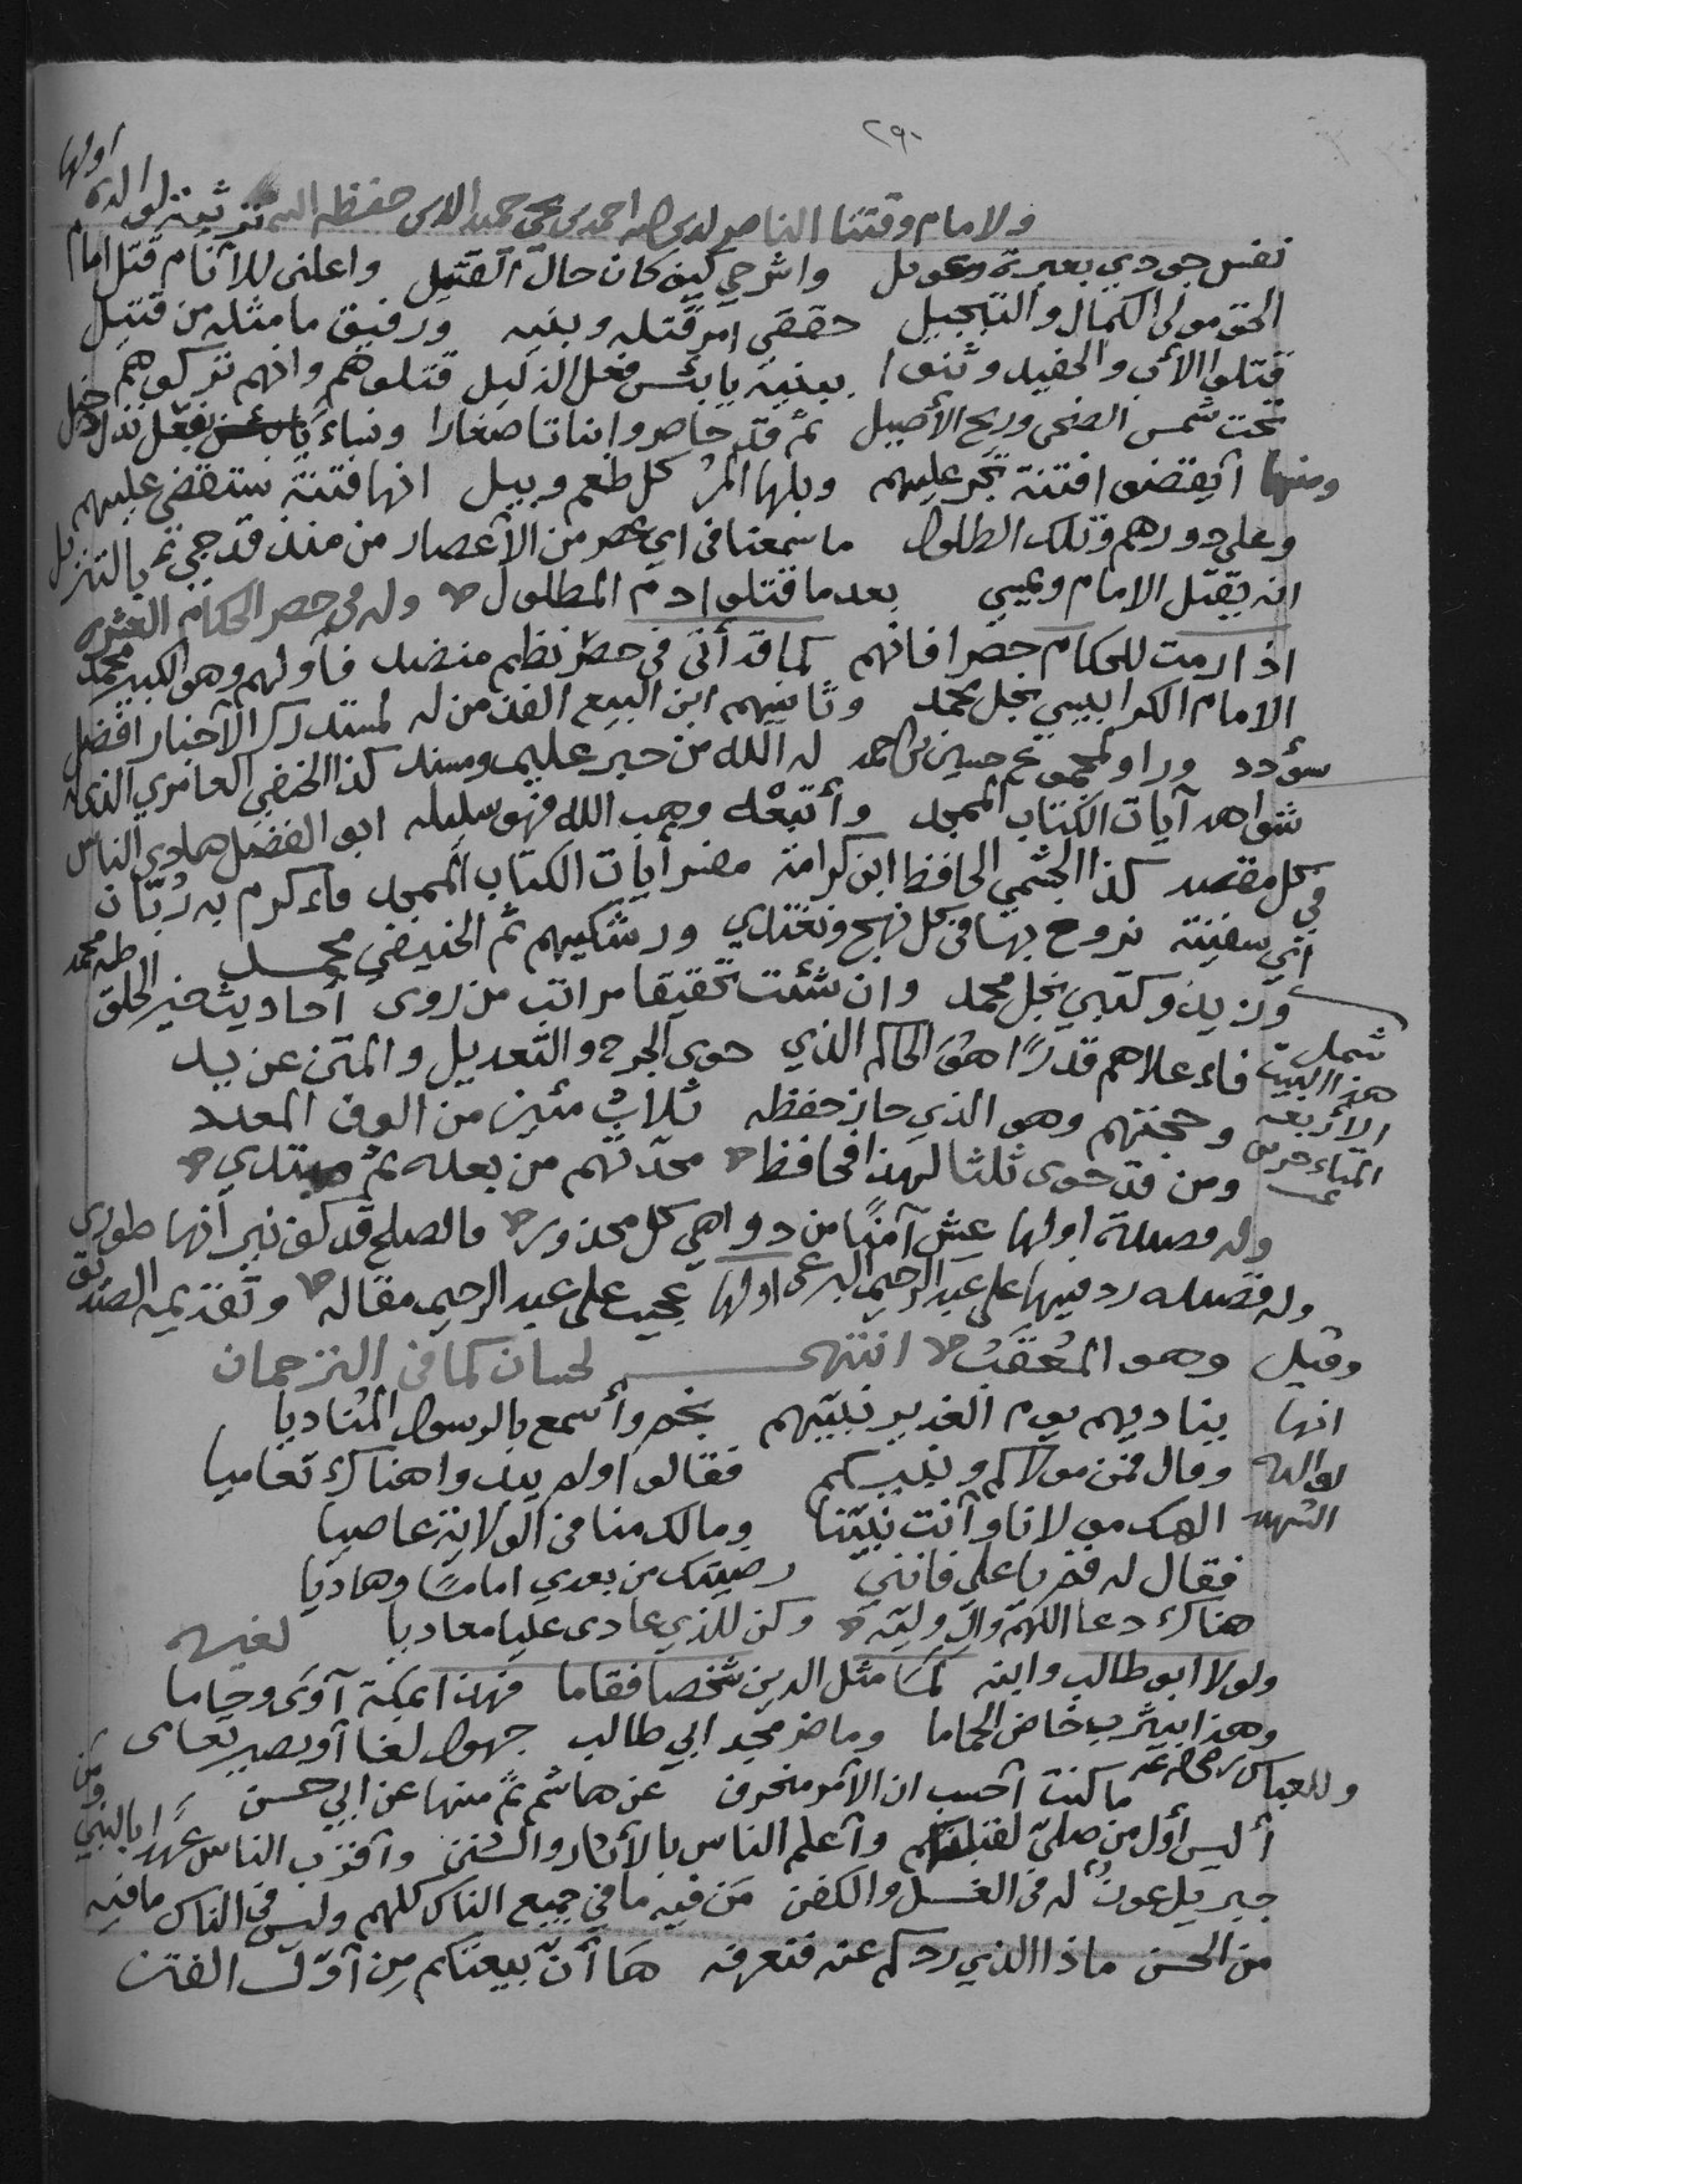 ٢٩٠
ولامام وقتنا الناصر لدين الله احمد بن يحيى حميد الدين حفظه الله ترثية لوالده اولها
نفس جودي بعبرة وعويل واشرحي كيف كان حال القتيل واعلني للأنام قتل امام
الحق مولى الكمال والتبجيل حققي امر قتله وبنيه ورفيق ما مثله من قتيل
قتلوا الأب والحفيد وثنوا ببنيه يا بئس فعل الذليل قتلوهم وانهم تركوهم
تحت شمس الضحى وريح الأصيل ثم قد حاصروا اناثا صغارا ونساء يا بئس فعل نذل
ومنها أيقضوا فتنة تجر عليهم وبلها المر كل طعم وبيل انها فتنة ستقضي عليهم
وعلى دورهم وتلك الطلول ما سمعنا في اي عصر من الأعصار من منذ قد جي ثم بالتنزيل
انه يقتل الامام ويمسي بعدما قتلوا دم المطلول وله في حصر الحكام العشره
اذا رمت للحكام حصرا فانهم كما قد أتى في حصر نظم منضد فأولهم وهو الكبير محمد
الامام الكرابيسي نجل محمد وثانيهم ابن البيع الفذ من له لمستدرك الأخبار افضل
سؤدد وراو لمجموع حسين بن احمد له الله من حبر عليم ومسند كذا الحنفي العامري الذي له
شواهد آيات الكتاب الممجد وأتبعه وهب الله فهو سليله ابو الفضل هادي الناس
في كل مقصد كذا الجشمي الحافظ ابن كرامة مفسر أيات الكتاب الممجد فاءكرم به ربان
أي سفينة نروح بها في كل نهج ونغتدي ورشكيهم ثم الحنيفي محمد
وزيد وكعبي نجل محمد وان شئت تحقيقا مراتب من روى أحاديث خير الخلق طه محمد
شمل هذا البيت الأربعة
فاءعلاهم قدرًا هو الحاكم الذي حوى الجرح والتعديل والمتن عن يد
وحجتهم وهو الذي حاز حفظه ثلاث مئين من الوف المعدد
ومن قد حوى ثلثا لهذا فحافظ محدثهم من بعده ثم مبتدي
وله قصيدة اولها عش آمنًا من دواهي كل محذور فالصلح قد كف نيرانها طوري
وله قصيده رد فيها على عبد الرحيم البرعي اولها عجيب على عبد الرحيم مقاله وتقديمه الصديق
وهو المعقب انتهى لحسان كما في الترجمان
وقيل انها لوالده الشهيد
يناديهم يوم الغدير نبيهم بخم وأسمع بالرسول المناديا
وقال فمن مولاكم ونبيكم فقالوا ولم يبدوا هناك تعاميا
الهك مولانا وأنت نبينا ومالك منا في الولاية عاصيا
فقال له قم يا علي فانني رضيتك من بعدي اماما وهاديا
هناك دعا اللهم وال وليه وكن للذي عادى عليا معاديا لغيره
ولولا ابو طالب وابنه لما مثل الدين شخصا فقاما فهذا بمكة آوى وحاما
وهذا بيثرب خاض الحماما وما ضر مجد ابي طالب جهول لغا أو بصير تعامى
وللعباس رضي الله عنه ما كنت أحسب ان الأمر منحرف عن هاشم ثم منها عن ابي حسن
أليس أول من صلى لقبلتكم وأعلم الناس بالأثار والسنن وأقرب الناس عهدًا بالنبي ومن
جبريل عون له في الغسل والكفن مَن فيه ما في جميع الناس كلهم وليس في الناس ما فيه
من الحسن ماذا الذي ردكم عنه فنعرفه هَا أنّ بيعتكم مِن أوّل الفتن